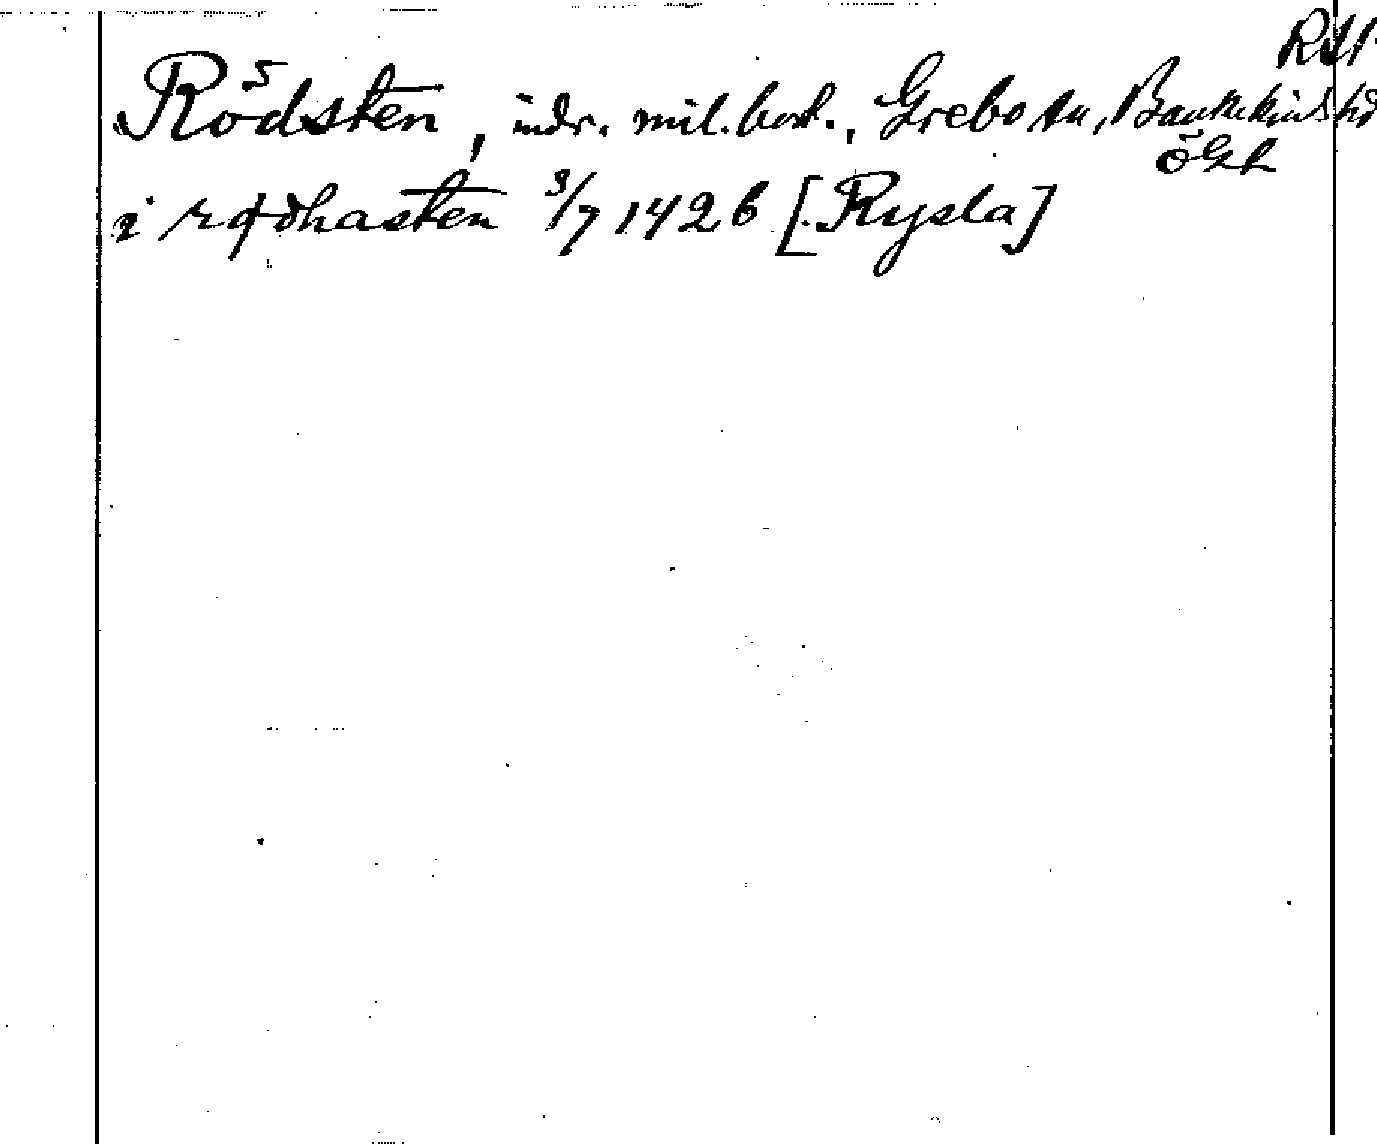 Rödsten, indr. mil. bost., Grebo sn, Bankekinds hd
ögl
i rødhasten 3/7 1426 [Rysla]